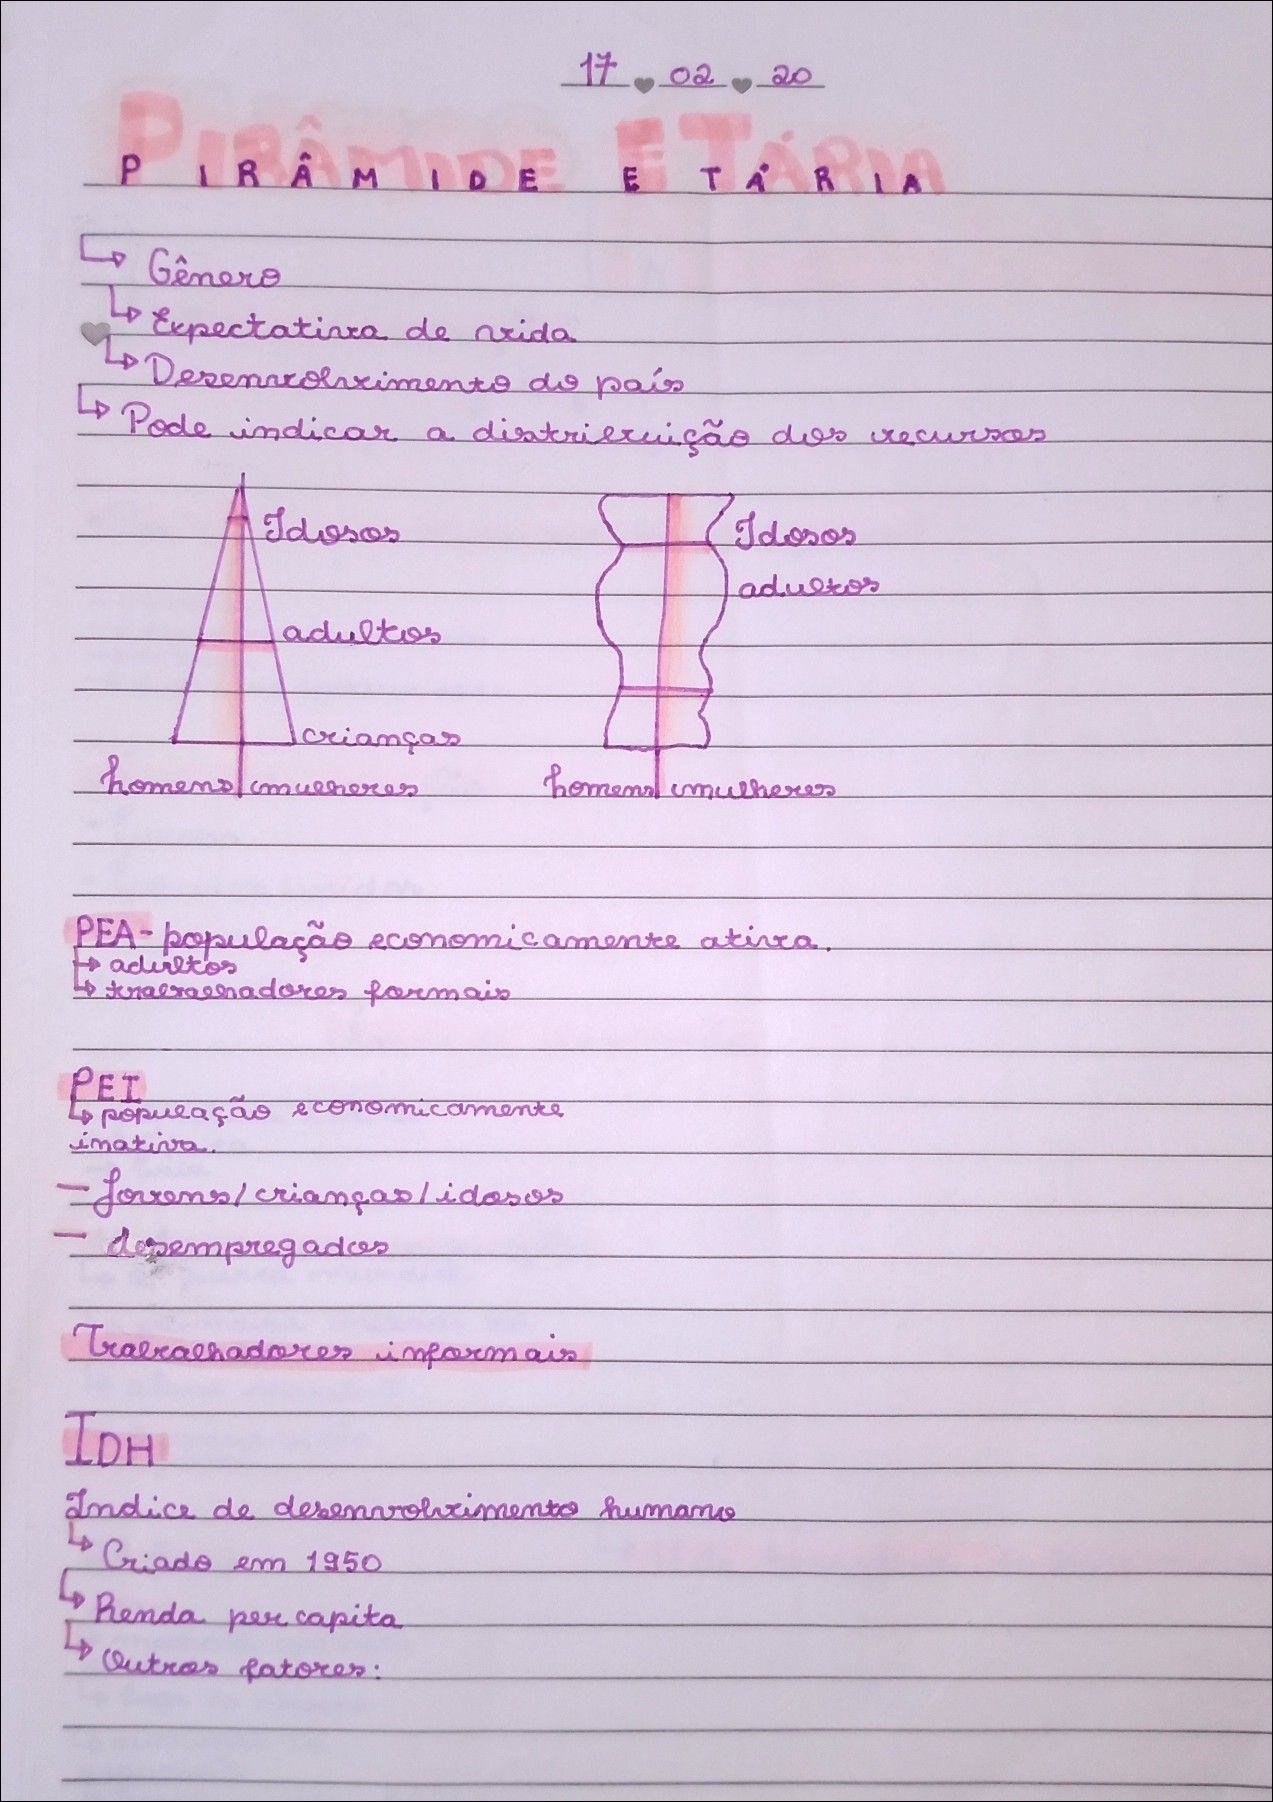 17 02 20
PIRÂMIDE ETÁRIA
PIRÂMIDE ETÁRIA
Gênero
Expectativa de vida
Desenvolvimento do país
Pode indicar a distribuição dos recursos
Idosos
adultos
crianças
homens mulheres
Idosos
adultos
homens mulheres
PEA- população economicamente ativa.
adultos
trabalhadores formais
PEI
população economicamente
inativa.
- Jovens/crianças/idosos
- desempregados
Trabalhadores informais
IDH
Indice de desenvolvimento humano
Criado em 1950
Renda per capita
Outros fatores: